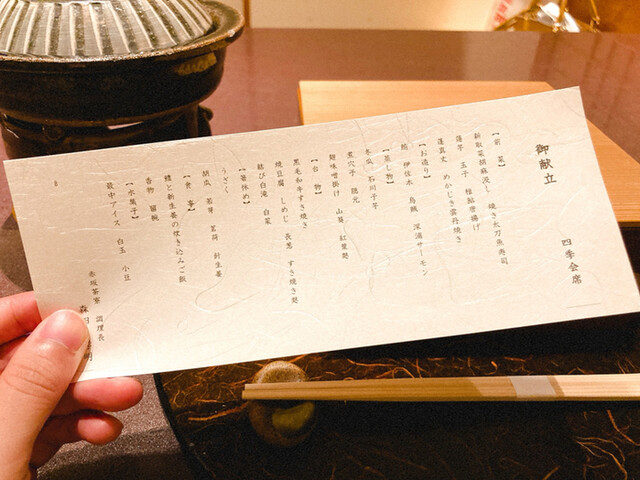 御献立
四季会席
【前菜】
新取菜胡麻浸し 焼き太刀魚寿司
玉子 稚鮎唐揚げ
蓮真丈 めかじき雲丹焼き
【お造り】
鯛 伊佐木 烏賊 深浦サーモン
【蒸し物】
冬瓜 石川子芋
煮穴子 隠元
味噌掛け 紅葉麩
【台物】
黒毛和牛すき焼き
焼豆腐 しめじ 長葱 すき焼き麩
結び白滝 白菜
【箸休め】
うざく
胡瓜 若芽 茗荷 針生姜
【食事】
鱧と新生姜の炊き込みご飯
香物 留椀
【水菓子】
最中アイス 白玉 小豆
赤坂茶寮 調理長